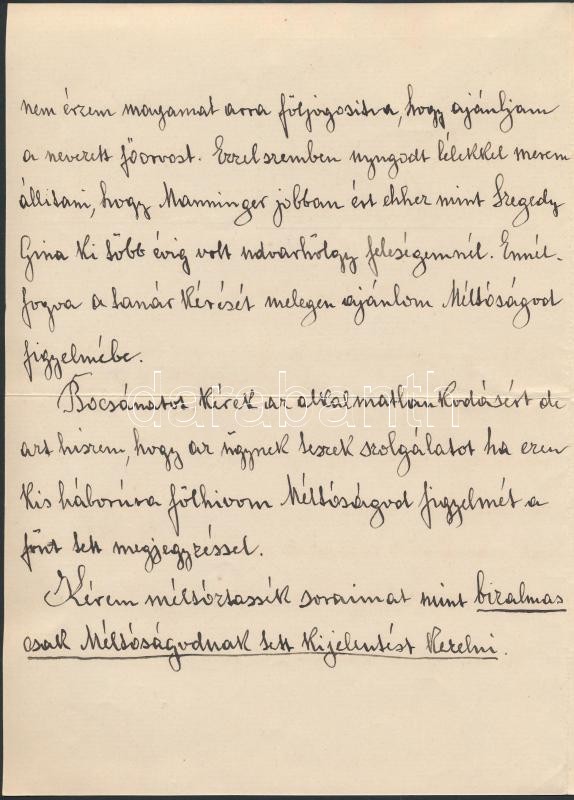 nem érzem magamat arra följogositva, hogy ajánljam
a nevezett főorvost. Ezzelszemben nyugodt lélekkel merem
állitani, hogy Manninger jobban ért ehhez mint Szegedy
Gina ki több évig volt udvarhölgy feleségemnél. Ennél-
fogva a tanár kérését melegen ajánlom Méltóságod
figyelmébe.
Bocsánatot kérek az alkalmatlankodásért de
azt hiszem, hogy az ügynek teszek szolgálatot ha ezen
kis háborúra fölhivom Méltóságod figyelmét a
fönt tett megjegyzéssel.
Kérem méltóztassék soraimat mint bizalmas
csak Méltóságodnak tett kijelentést kezelni.
darabanth